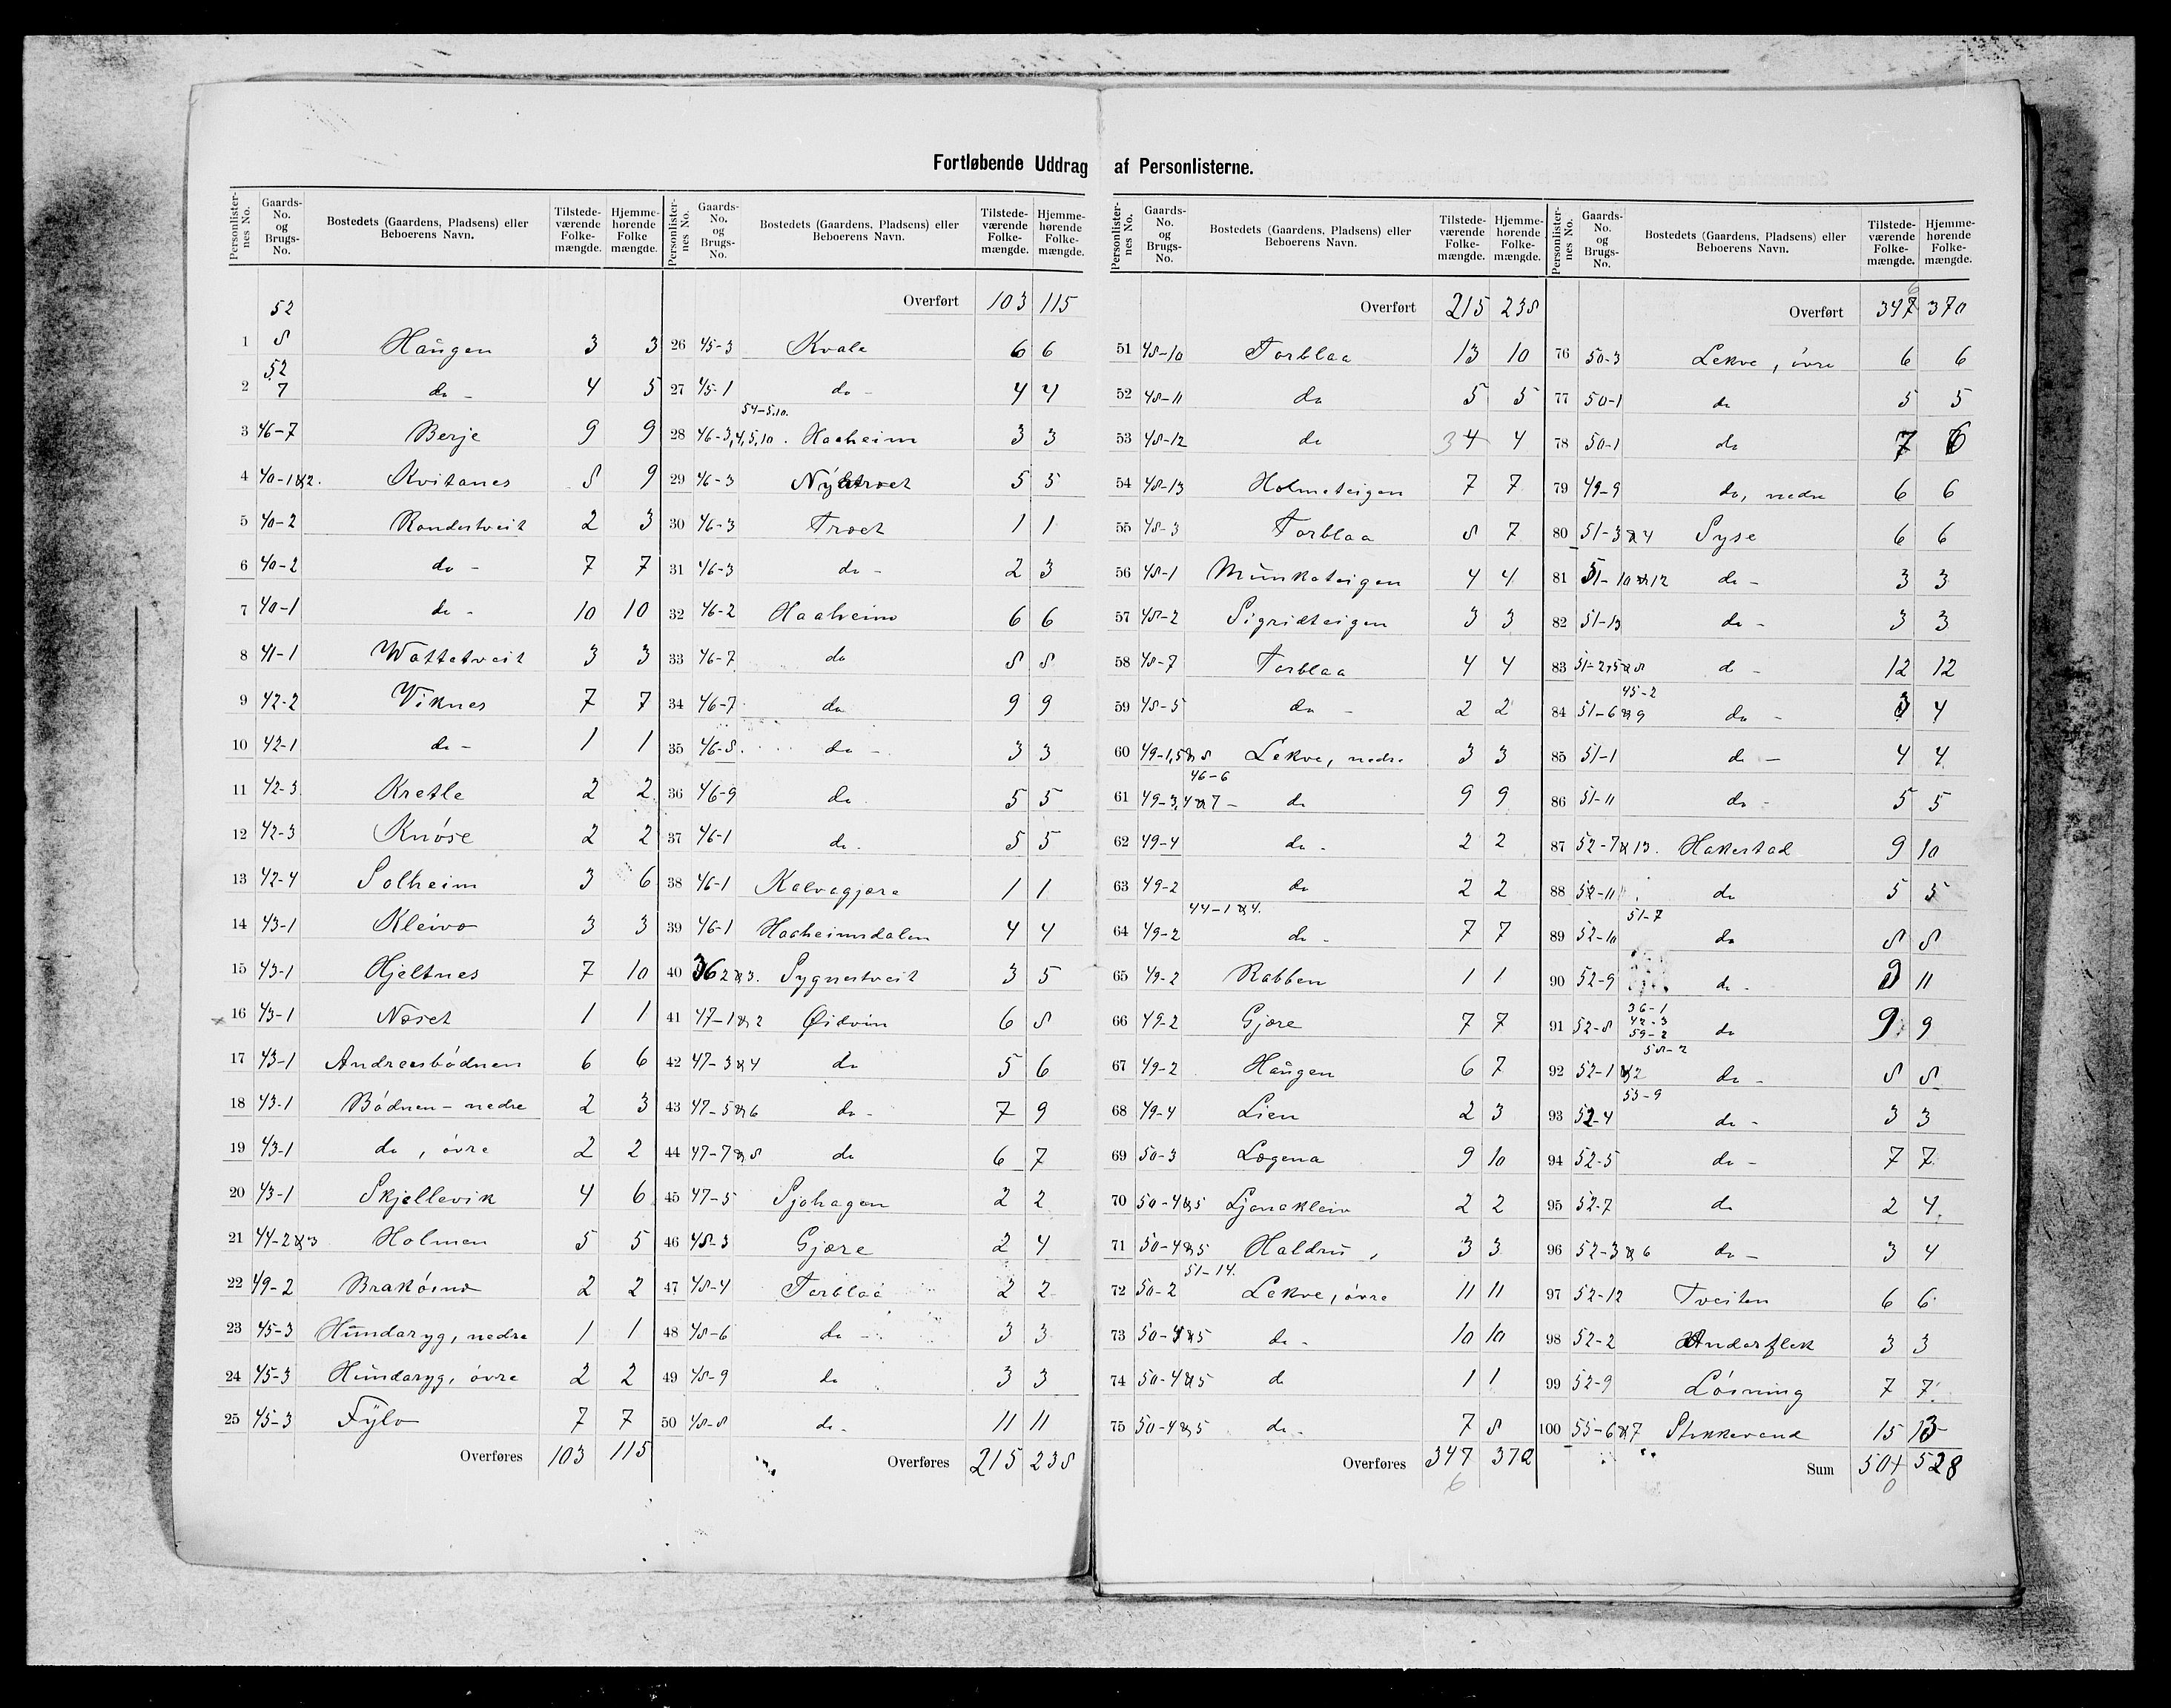 Fortløbende Uddrag af Personlisterne.
Personlisternes No. Gaards-No. og Brugs-No. Bostedets (Gaardens, Pladsens) eller Beboerens Navn. Tilstedeværende Folkemængde. Hjemmehørende Folkemængde.
1 52 8 Haugen 3 3
2 52 7 do - 4 5
3 46-7 Berje 9 9
4 40-1&2. Kvitanes 8 9
5 40-2 Rondestveit 2 3
6 40-2 do - 7 7
7 40-1 do - 10 10
8 41-1 Wattatveit 3 3
9 42-2 Viknes 7 7
10 42-1 do - 1 1
11 42-3 Kretle 2 2
12 42-3 Knöse 2 2
13 42-4 Solheim 3 6
14 43-1 Kleivo 3 3
15 43-1 Hjeltnes 7 10
16 43-1 Næset 1 1
17 43-1 Andreasbödnen 6 6
18 43-1 Bödnen - nedre 2 3
19 43-1 do, övre 2 2
20 43-1 Skjellevik 4 6
21 44-2&3 Holmen 5 5
22 49-2 Braköino 2 2
23 45-3 Hundaryg, nedre 1 1
24 45-3 Hundaryg, övre 2 2
25 45-3 Fylo 7 7
Overføres 103 115
Personlisternes No. Gaards-No. og Brugs-No. Bostedets (Gaardens, Pladsens) eller Beboerens Navn. Tilstedeværende Folkemængde. Hjemmehørende Folkemængde.
Overført 103 115
26 45-3 Kvale 6 6
27 45-1 do - 4 4
54-5,10.
28 46-3,4,5,10. Haaheim 3 3
29 46-3 5 5
30 46-3 Træet 1 1
31 46-3 do - 2 3
32 46-2 Haaheim 6 6
33 46-7 do 8 8
34 46-7 do 9 9
35 46-8. do - 3 3
36 46-9 do 5 5
37 46-1 do. 5 5
38 46-1 Kalvagjære 1 1
39 46-1 Haaheimsdalen 4 4
40 36 2&3. Sygnestveit 3 5
41 47-1&2 Øidvin 6 8
42 47-3&4 do 5 6
43 47-5&6 do - 7 9
44 47-7&8 do 6 7
45 47-5 Sjohagen 2 2
46 48-3 Gjære 2 4
47 48-4 Torblaa 2 2
48 48-6 do - 3 3
49 48-9 do 3 3
50 48-8 do. 11 11
Overføres 215 238
Personlisternes No. Gaards-No. og Brugs-No. Bostedets (Gaardens, Pladsens) eller Beboerens Navn. Tilstedeværende Folkemængde. Hjemmehørende Folkemængde.
Overført 215 238
51 48-10 Torblaa 13 10
52 48-11 do 5 5
53 48-12 do 3 4 4
54 48-13 Holmateigen 7 7
55 48-3 Torblaa 8 7
56 48-1 Munkateigen 4 4
57 48-2 Sigridteigen 3 3
58 48-7 Torblaa 4 4
59 48-5 do - 2 2
60 49-1,5&8 Lekve, nedre 3 3
46-6
61 49-3,4&7 - do 9 9
62 49-4 do - 2 2
63 49-2 do 2 2
44-1&4.
64 49-2 do - 7 7
65 49-2 Rabben 1 1
66 49-2 Gjære 7 7
67 49-2 Haugen 6 7
68 49-4 Lien 2 3
69 50-3 Lægena 9 10
70 50-4&5 Ljonakleiv 2 2
71 50-4&5 Haldru, 3 3
51-14.
72 50-2 Lekve, övre 11 11
73 50-4&5 do - 10 10
74 50-4&5 do 1 1
75 50-4&5 do - 7 8
Overføres 347 370
6
Personlisternes No. Gaards-No. og Brugs-No. Bostedets (Gaardens, Pladsens) eller Beboerens Navn. Tilstedeværende Folkemængde. Hjemmehørende Folkemængde.
6
Overført 347 370
76 50-3 Lekve, övre 6 6
77 50-1 do 5 5
78 50-1 do 7 6
79 49-9 do, nedre 6 6
80 51-3&4 Syse 6 6
81 51-10&12 do - 3 3
82 51-13 do - 3 3
83 51-2,5&8 do - 12 12
45-2
84 51-6&9 do - 3 4
85 51-1 do - 4 4
86 51-11 do - 5 5
87 52-7&13. Hakestad 9 10
88 52-11 do 5 5
51-7
89 52-10 do 8 8
90 52-9 do - 9 11
36-1
42-3
91 52-8 59-2 do 9 9
58-2
92 52-1&2 do - 8 8
55-9
93 52-4 do - 3 3
94 52-5 do - 7 7
95 52-7 do 2 4
96 52-3&6 do - 3 4
97 52-12 Tveiten 6 6
98 52-2 Anderflek 3 3
99 52-9 Lösning 7 7
100 55-6&7 Stokkevand 15 13
Sum 501 528
0